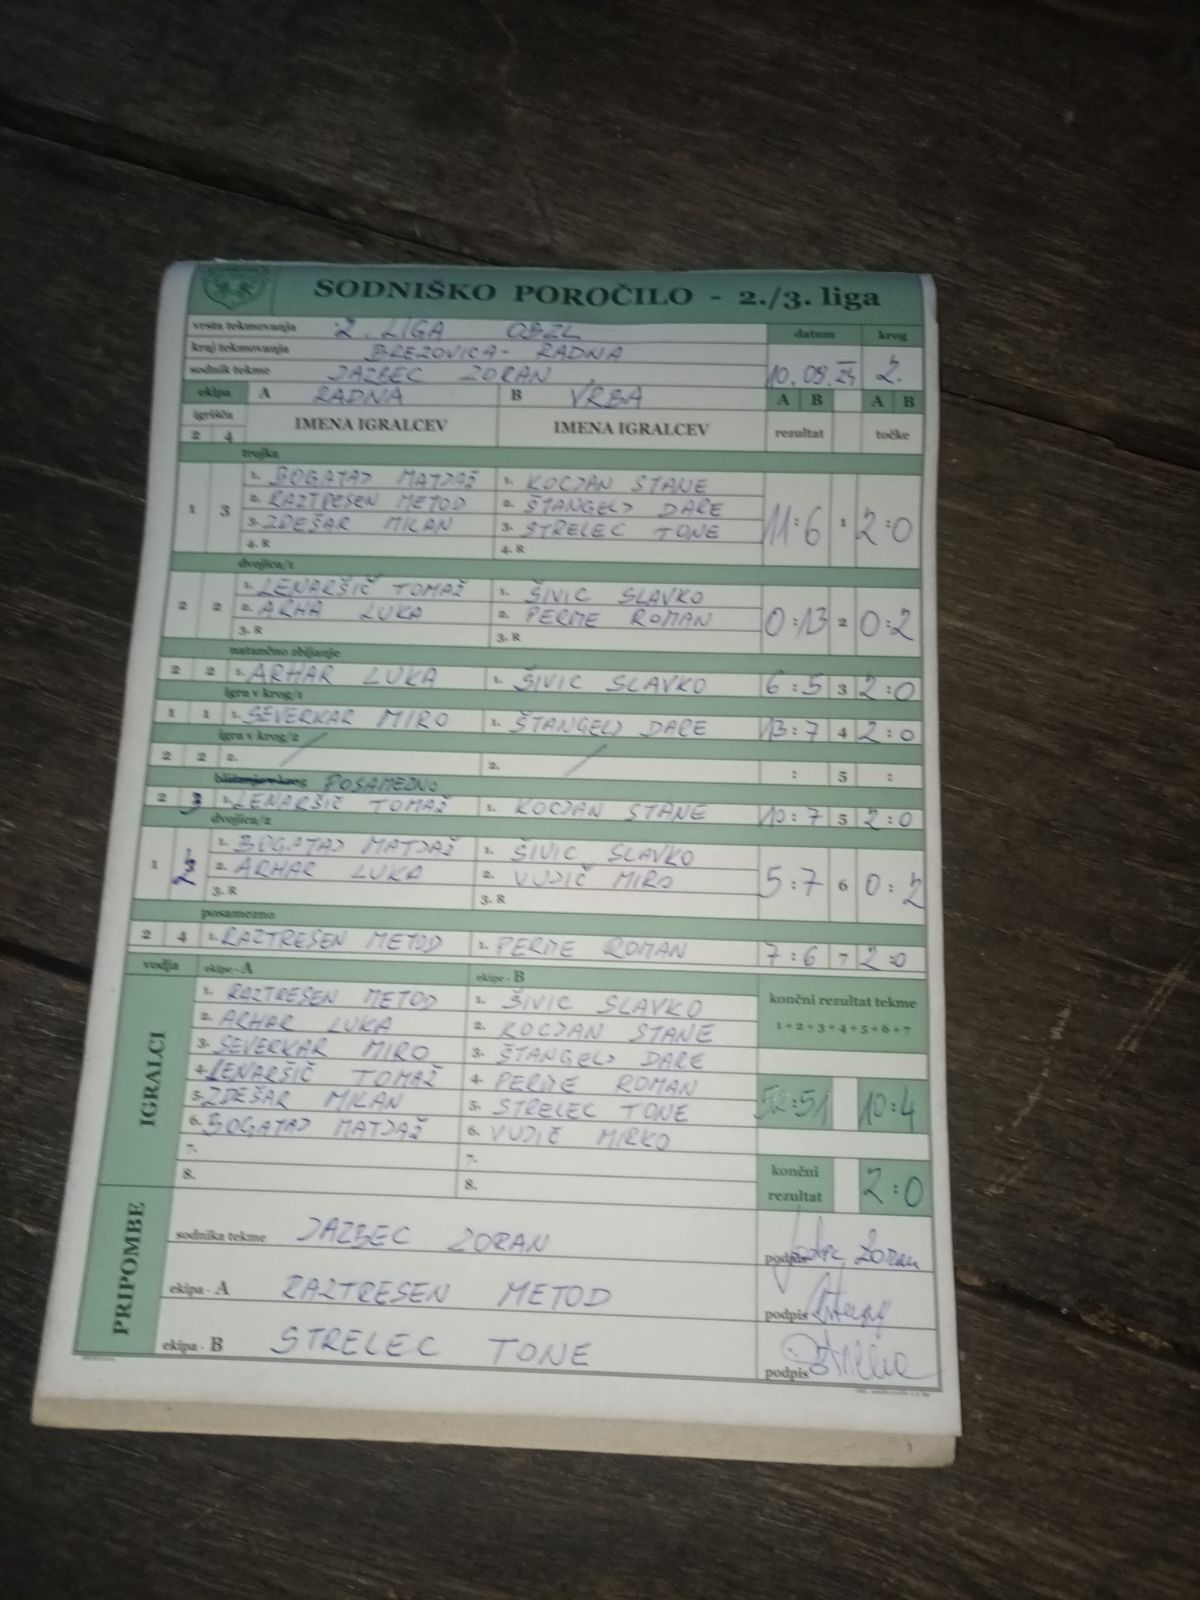 SODNIŠKO POROČILO - 2./3. liga
vrsta tekmovanja 2. LIGA OBZL datum krog
kraj tekmovanja BREZOVICA - RADNA
sodnik tekme JAZBEC ZORAN 10.09.24 2.
ekipa A RADNA B VRBA A B A B
igrišča IMENA IGRALCEV IMENA IGRALCEV rezultat točke
2 4
trojka
1. BOGATAJ MATJAŽ 1. KOCJAN STANE
1 3 2. RAZTRESEN METOD 2. ŠTANGELJ DARE 11:6 1 2:0
3. ZDEŠAR MILAN 3. STRELEC TONE
4. R 4. R
dvojica/1
1. LENARŠIČ TOMAŽ 1. ŠIVIC SLAVKO
2 2 2. ARHA LUKA 2. PERME ROMAN 0:13 2 0:2
3. R 3. R
natančno zbijanje
2 2 1. ARHAR LUKA 1. ŠIVIC SLAVKO 6:5 3 2:0
igra v krog/1
1 1 1. SEVERKAR MIRO 1. ŠTANGELJ DARE 13:7 4 2:0
igra v krog/2
2 2 2. / 2. / : 5 :
bližanje v krog POSAMEZNO
2 3 1. LENARŠIČ TOMAŽ 1. KOCJAN STANE 10:7 5 2:0
dvojica/2
1. BOGATAJ MATJAŽ 1. ŠIVIC SLAVKO
1 2. ARHAR LUKA 2. VUJIČ MIRO 5:7 6 0:2
3. R 3. R
posamezno
2 4 1. RAZTRESEN METOD 1. PERME ROMAN 7:6 7 2:0
vodja ekipe - A ekipe - B
IGRALCI
1. RAZTRESEN METOD 1. ŠIVIC SLAVKO končni rezultat tekme
2. ARHAR LUKA 2. KOCJAN STANE 1+2+3+4+5+6+7
3. SEVERKAR MIRO 3. ŠTANGELJ DARE
4. LENARŠIČ TOMAŽ 4. PERME ROMAN
5. ZDEŠAR MILAN 5. STRELEC TONE 52:51 10:4
6. BOGATAJ MATJAŽ 6. VUJIČ MIRKO
7. 7.
8. 8. končni rezultat 2:0
PRIPOMBE
sodnika tekme JAZBEC ZORAN podpis
ekipa - A RAZTRESEN METOD podpis
ekipa - B STRELEC TONE podpis